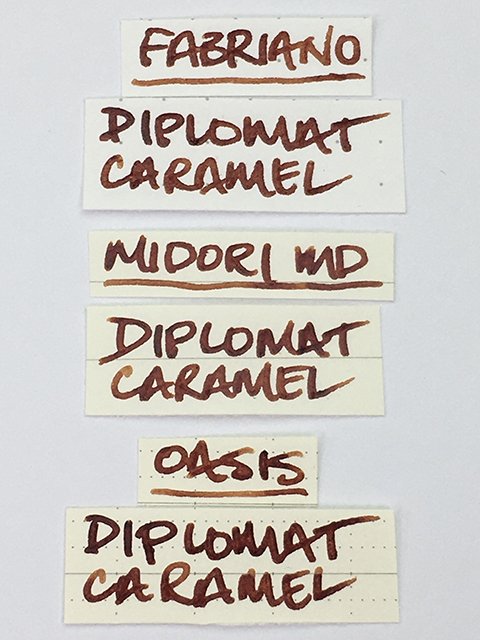 FABRIANO
DIPLOMAT
CARAMEL
MIDORI MD
DIPLOMAT
CARAMEL
OASIS
DIPLOMAT
CARAMEL